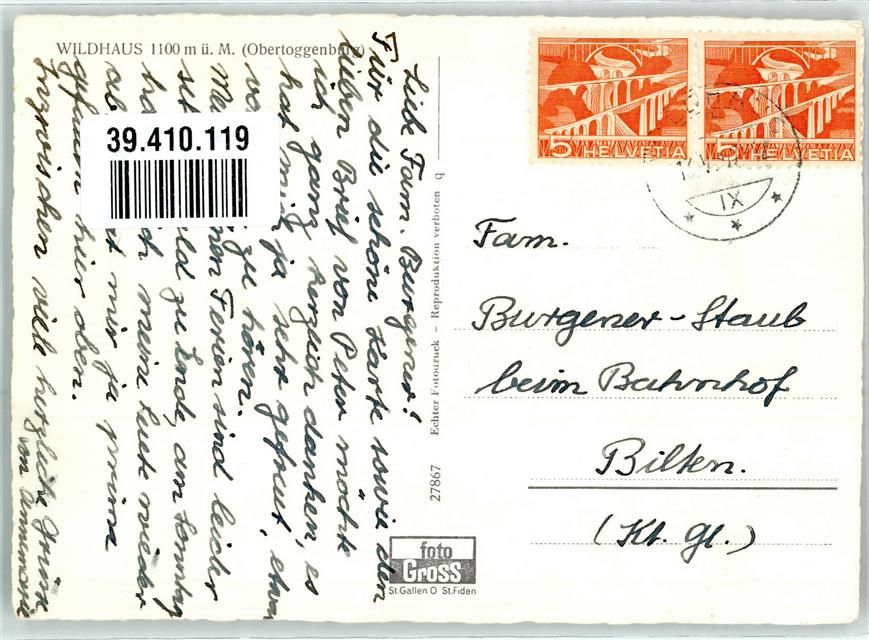 WILDHAUS 1100 m ü. M. (Obertoggenburg)
39.410.119
Liebe Fam. Burgener!
Für die schöne Karte sowie den
lieben Brief von Peter möchte
ich ganz herzlich danken, es
hat mich ja sehr gefreut, etwas
zu hören.
Ferien sind leider
zu Ende, am Sonntag
meine Leute wieder
ab mir ja prima
gefallen hier oben.
Inzwischen viele herzliche Grüsse
von Annemarie
27867 Echter Fotodruck – Reproduktion verboten q
foto
GROSS
St.Gallen O St.Fiden
5 HELVETIA
5 HELVETIA
IX
Fam.
Burgener-Staub
beim Bahnhof
Bilten.
(Kt. Gl.)